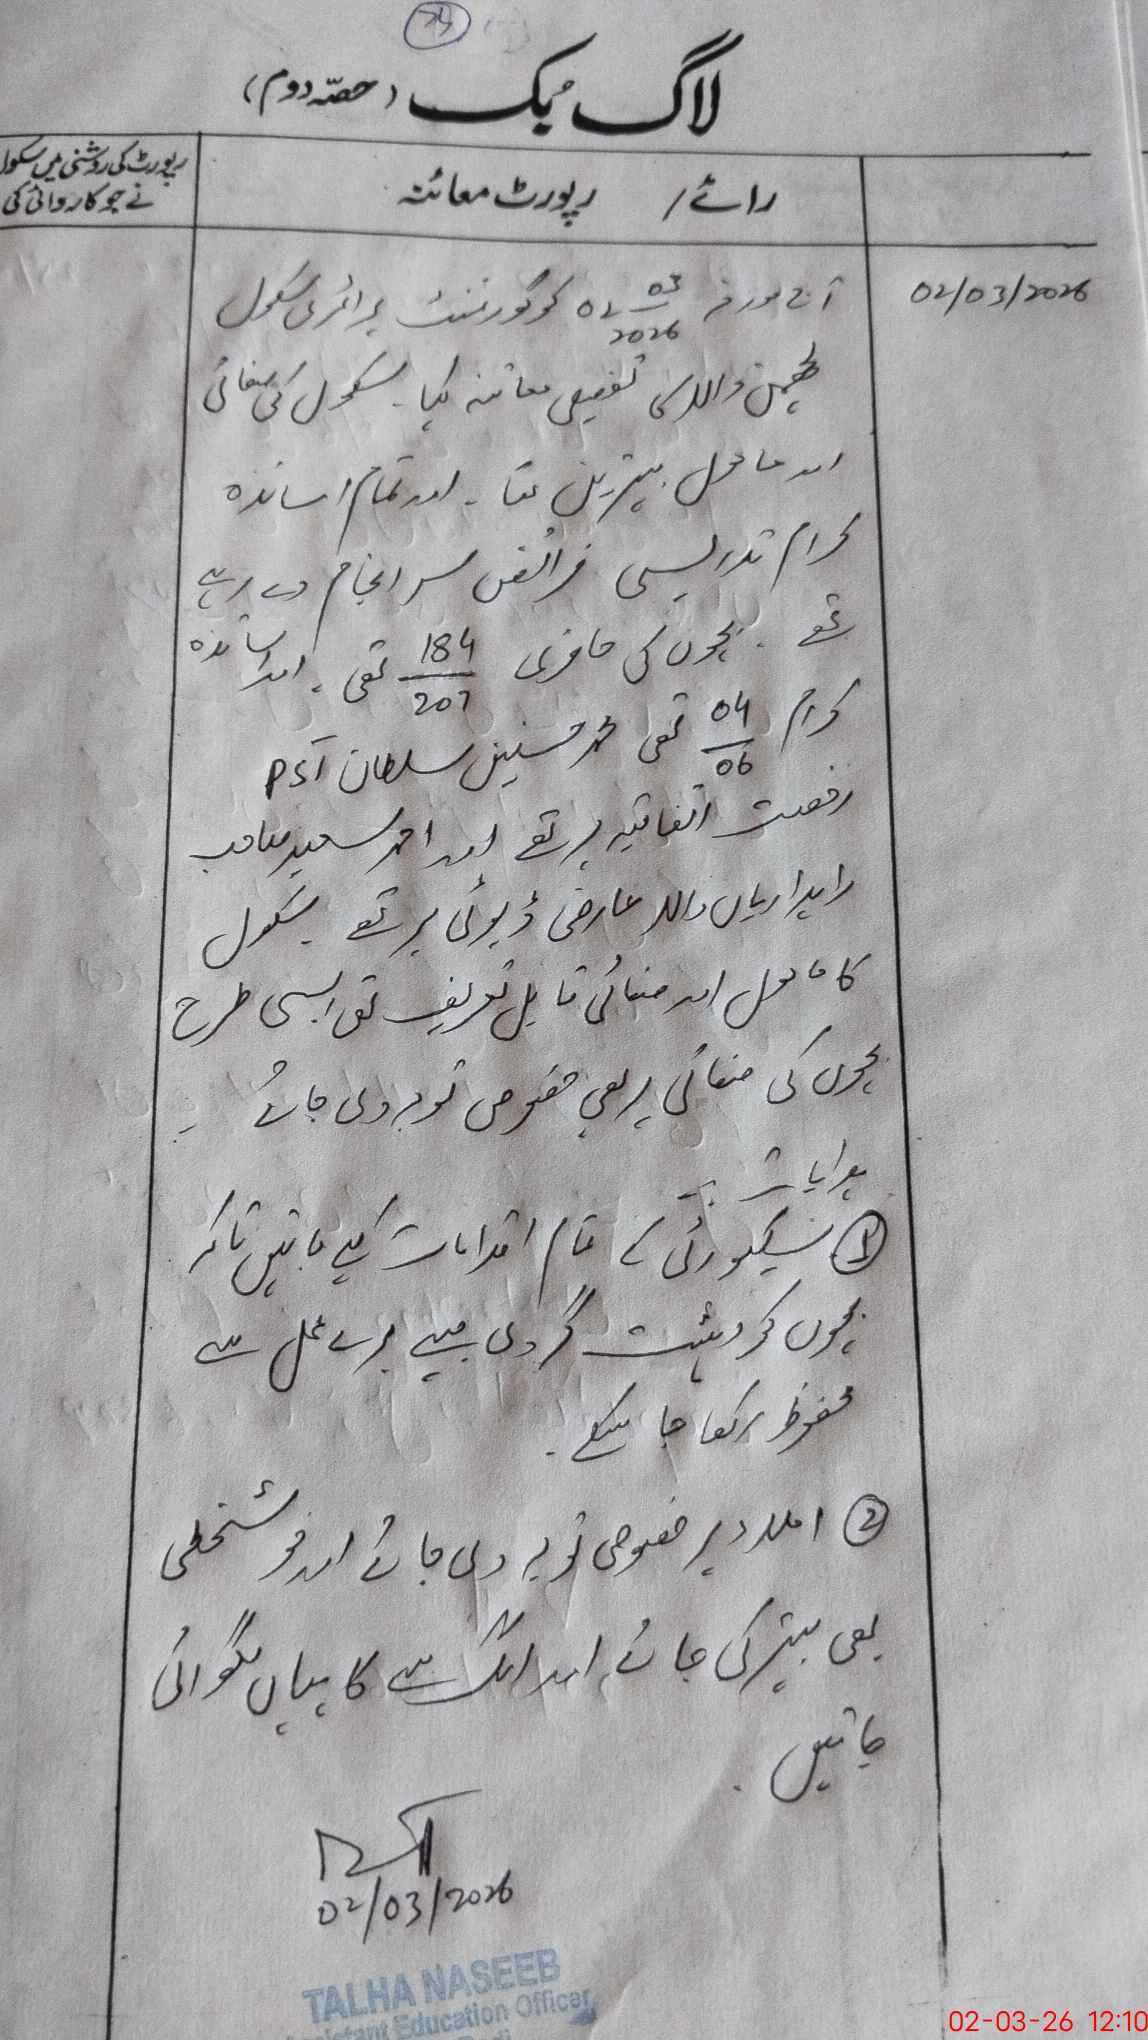 لاگ بک (حصہ دوم)
رائے / رپورٹ معائنہ
رپورٹ کی روشنی میں سکول
نے جو کاروائی کی
02/03/2026
آج مورخہ 02 03 2026 کو گورنمنٹ پرائمری سکول
والا کا تفصیلی معائنہ کیا۔ سکول کی صفائی
اور ماحول بہترین تھا۔ اور تمام اساتذہ
کرام تدریسی فرائض سر انجام دے رہے
تھے۔ بچوں کی حاضری 184/207 تھی۔ اور اساتذہ
کرام 04/06 تھی محمد حسنین سلطان PST
رخصت اتفاقیہ پر تھے اور احمد سعید صاحب
والا عارضی ڈیوٹی پر تھے۔ سکول
کا ماحول اور صفائی قابل تعریف تھی اسی طرح
بچوں کی صفائی پر بھی خصوصی توجہ دی جائے۔
ہدایات:۔
① سیکیورٹی کے تمام اقدامات کیے جائیں تاکہ
بچوں کو دہشت گردی جیسے برے عمل سے
محفوظ رکھا جا سکے۔
② املاء پر خصوصی توجہ دی جائے اور خوشخطی
بھی بہتر کی جائے اور الگ سے کاپیاں لگوائی
جائیں۔
02/03/2026
TALHA NASEEB
Assistant Education Officer
02-03-26 12:10